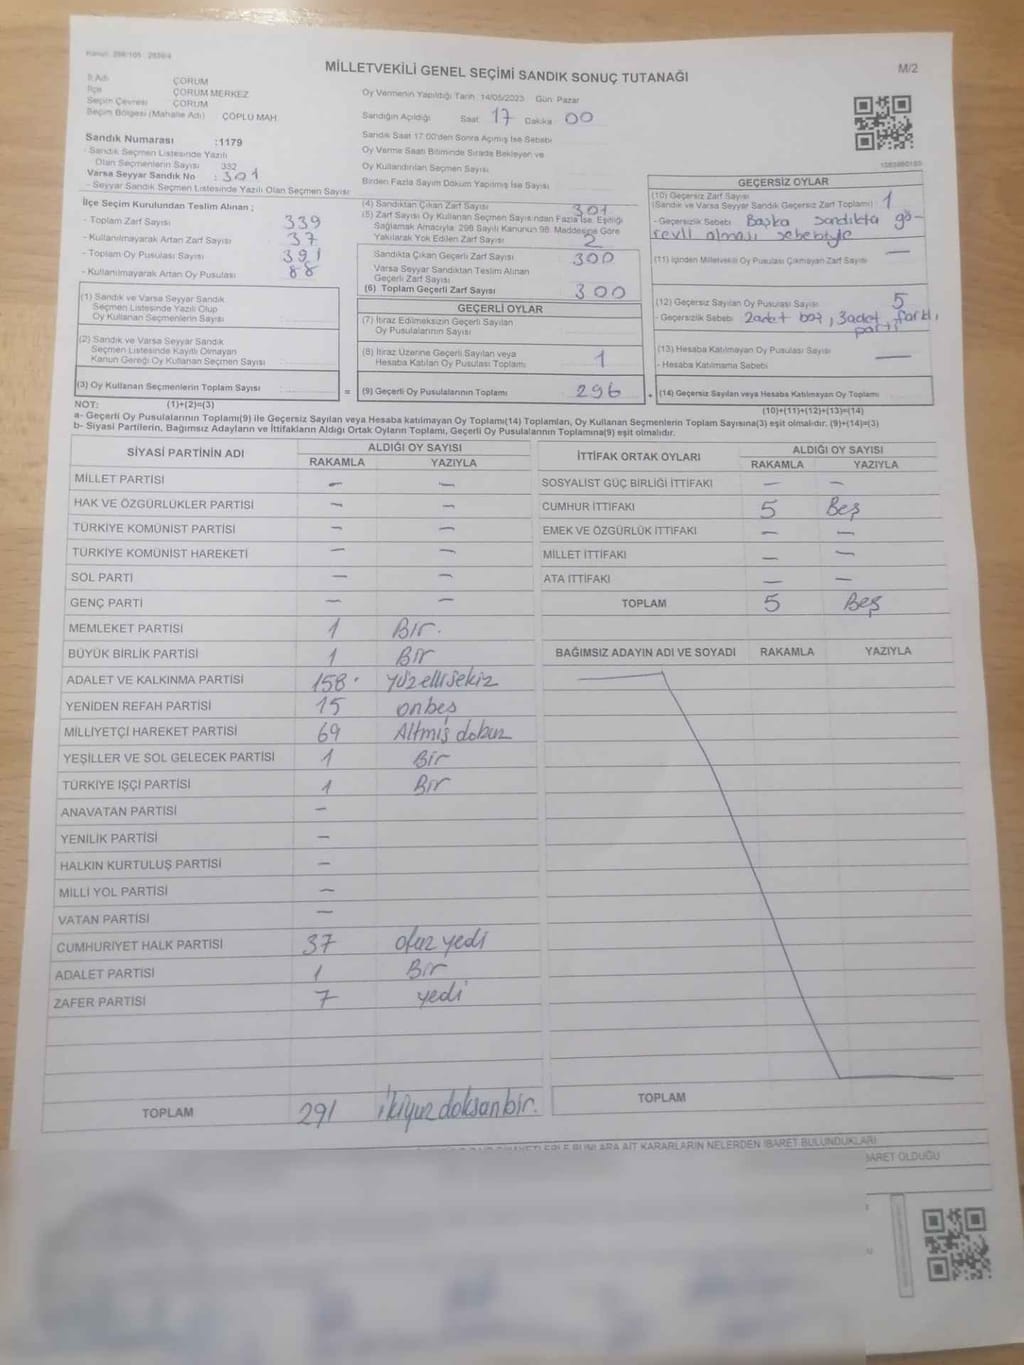 MİLLETVEKİLİ GENEL SEÇİMİ SANDIK SONUÇ TUTANAĞI
M/2
İl Adı ÇORUM
İlçe ÇORUM MERKEZ
Seçim Çevresi ÇORUM
Seçim Bölgesi (Mahalle Adı) ÇÖPLÜ MAH.
Sandık Numarası :1179
- Sandık Seçmen Listesinde Yazılı
Olan Seçmenlerin Sayısı 332
Varsa Seyyar Sandık No : 301
- Seyyar Sandık Seçmen Listesinde Yazılı Olan Seçmen Sayısı
Oy Vermenin Yapıldığı Tarih 14/05/2023 Gün Pazar
Sandığın Açıldığı Saat 17 Dakika 00
Sandık Saat 17:00'den Sonra Açılmış İse Sebebi
Oy Verme Saati Bitiminde Sırada Bekleyen ve
Oy Kullandırılan Seçmen Sayısı
Birden Fazla Sayım Döküm Yapılmış İse Sayısı
İlçe Seçim Kurulundan Teslim Alınan ;
- Toplam Zarf Sayısı 339
- Kullanılmayarak Artan Zarf Sayısı 37
- Toplam Oy Pusulası Sayısı 391
- Kullanılmayarak Artan Oy Pusulası 88
(1) Sandık ve Varsa Seyyar Sandık
Seçmen Listesinde Yazılı Olup
Oy Kullanan Seçmenlerin Sayısı
(2) Sandık ve Varsa Seyyar Sandık
Seçmen Listesinde Kayıtlı Olmayan
Kanun Gereği Oy Kullanan Seçmen Sayısı
(3) Oy Kullanan Seçmenlerin Toplam Sayısı =
(4) Sandıktan Çıkan Zarf Sayısı 301
(5) Zarf Sayısı Oy Kullanan Seçmen Sayısından Fazla İse, Eşitliği
Sağlamak Amacıyla; 298 Sayılı Kanunun 98. Maddesine Göre
Yakılarak Yok Edilen Zarf Sayısı 2
Sandıkta Çıkan Geçerli Zarf Sayısı 300
Varsa Seyyar Sandıktan Teslim Alınan
Geçerli Zarf Sayısı
(6) Toplam Geçerli Zarf Sayısı 300
GEÇERLİ OYLAR
(7) İtiraz Edilmeksizin Geçerli Sayılan
Oy Pusulalarının Sayısı
(8) İtiraz Üzerine Geçerli Sayılan veya
Hesaba Katılan Oy Pusulası Toplamı 1
(9) Geçerli Oy Pusulalarının Toplamı 296 +
GEÇERSİZ OYLAR
(10) Geçersiz Zarf Sayısı
(Sandık ve Varsa Seyyar Sandık Geçersiz Zarf Toplamı) 1
- Geçersizlik Sebebi Başka sandıkta gö-
revli olması sebebiyle
(11) İçinden Milletvekili Oy Pusulası Çıkmayan Zarf Sayısı —
(12) Geçersiz Sayılan Oy Pusulası Sayısı 5
- Geçersizlik Sebebi 2 adet boş, 3 adet farklı
parti
(13) Hesaba Katılmayan Oy Pusulası Sayısı —
- Hesaba Katılmama Sebebi
(14) Geçersiz Sayılan veya Hesaba Katılmayan Oy Toplamı
(10)+(11)+(12)+(13)=(14)
NOT: (1)+(2)=(3)
a- Geçerli Oy Pusulalarının Toplamı(9) ile Geçersiz Sayılan veya Hesaba katılmayan Oy Toplamı(14) Toplamları, Oy Kullanan Seçmenlerin Toplam Sayısına(3) eşit olmalıdır. (9)+(14)=(3)
b- Siyasi Partilerin, Bağımsız Adayların ve İttifakların Aldığı Ortak Oyların Toplamı, Geçerli Oy Pusulalarının Toplamına(9) eşit olmalıdır.
SİYASİ PARTİNİN ADI ALDIĞI OY SAYISI
RAKAMLA YAZIYLA
MİLLET PARTİSİ — —
HAK VE ÖZGÜRLÜKLER PARTİSİ — —
TÜRKİYE KOMÜNİST PARTİSİ — —
TÜRKİYE KOMÜNİST HAREKETİ — —
SOL PARTİ — —
GENÇ PARTİ — —
MEMLEKET PARTİSİ 1 Bir.
BÜYÜK BİRLİK PARTİSİ 1 Bir
ADALET VE KALKINMA PARTİSİ 158 yüzellisekiz
YENİDEN REFAH PARTİSİ 15 onbeş
MİLLİYETÇİ HAREKET PARTİSİ 69 Altmış dokuz
YEŞİLLER VE SOL GELECEK PARTİSİ 1 Bir
TÜRKİYE İŞÇİ PARTİSİ 1 Bir
ANAVATAN PARTİSİ —
YENİLİK PARTİSİ —
HALKIN KURTULUŞ PARTİSİ —
MİLLİ YOL PARTİSİ —
VATAN PARTİSİ —
CUMHURİYET HALK PARTİSİ 37 otuz yedi
ADALET PARTİSİ 1 Bir
ZAFER PARTİSİ 7 yedi
TOPLAM 291 ikiyüzdoksanbir.
İTTİFAK ORTAK OYLARI ALDIĞI OY SAYISI
RAKAMLA YAZIYLA
SOSYALİST GÜÇ BİRLİĞİ İTTİFAKI — —
CUMHUR İTTİFAKI 5 Beş
EMEK VE ÖZGÜRLÜK İTTİFAKI — —
MİLLET İTTİFAKI — —
ATA İTTİFAKI — —
TOPLAM 5 Beş
BAĞIMSIZ ADAYIN ADI VE SOYADI RAKAMLA YAZIYLA
TOPLAM
BUNLARA AİT KARARLARIN NELERDEN İBARET BULUNDUKLARI
İBARET OLDUĞU